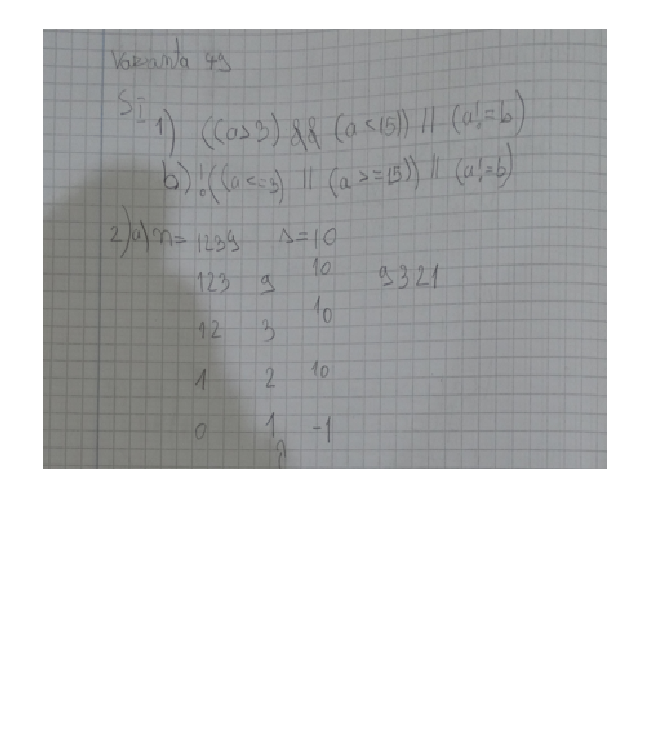 Varianta 49
SI 1) ((a>3) && (a<15)) || (a!=b)
b) !((a<=3) || (a>=15)) || (a!=b)
2) a) n=1239 s=10
123 9 10 9321
12 3 10
1 2 10
0 1 -1